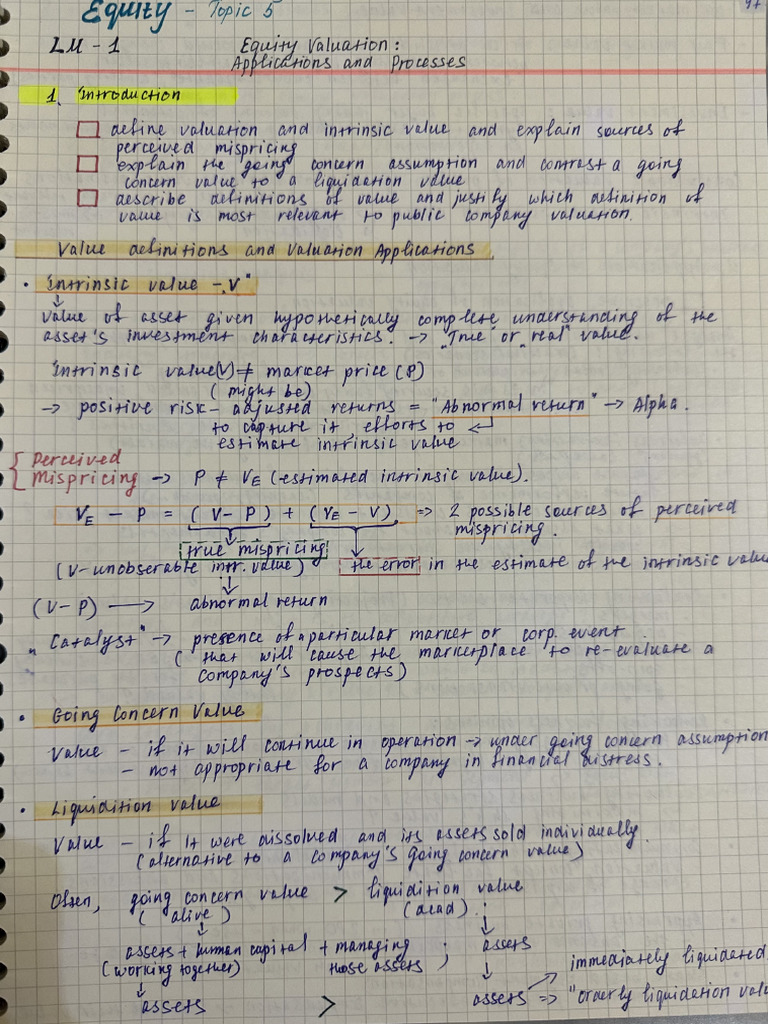 Equity - Topic 5
LM - 1 Equity Valuation:
Applications and Processes
1. Introduction
☐ define valuation and intrinsic value and explain sources of
perceived mispricing
☐ explain the going concern assumption and contrast a going
concern value to a liquidation value
☐ describe definitions of value and justify which definition of
value is most relevant to public company valuation.
Value definitions and Valuation Applications
• Intrinsic value - „V"
↓
value of asset given hypothetically complete understanding of the
asset's investment characteristics. → „True" or „real" value.
Intrinsic value(V) ≠ market price (P)
(might be)
→ positive risk-adjusted returns = "Abnormal return" → Alpha.
to capture it efforts to ↵
estimate intrinsic value
{ Perceived
Mispricing → P ≠ VE (estimated intrinsic value).
VE - P = (V - P) + (VE - V) ⇒ 2 possible sources of perceived
mispricing.
true mispricing
(V-unobserable intr. value) the error in the estimate of the intrinsic valu
(V-P) → abnormal return
„Catalyst" → presence of a particular market or corp. event
(that will cause the marketplace to re-evaluate a
company's prospects)
• Going Concern Value
Value - if it will continue in operation → under going concern assumption
- not appropriate for a company in financial distress.
• Liquidition value
Value - if it were dissolved and its assets sold individually.
(alternative to a company's going concern value)
Often, going concern value > liquidition value
(alive) (dead)
assets + human capital + managing ; assets
(working together) those assets
immediately liquidated
assets > assets ⇒ "orderly liquidation valu